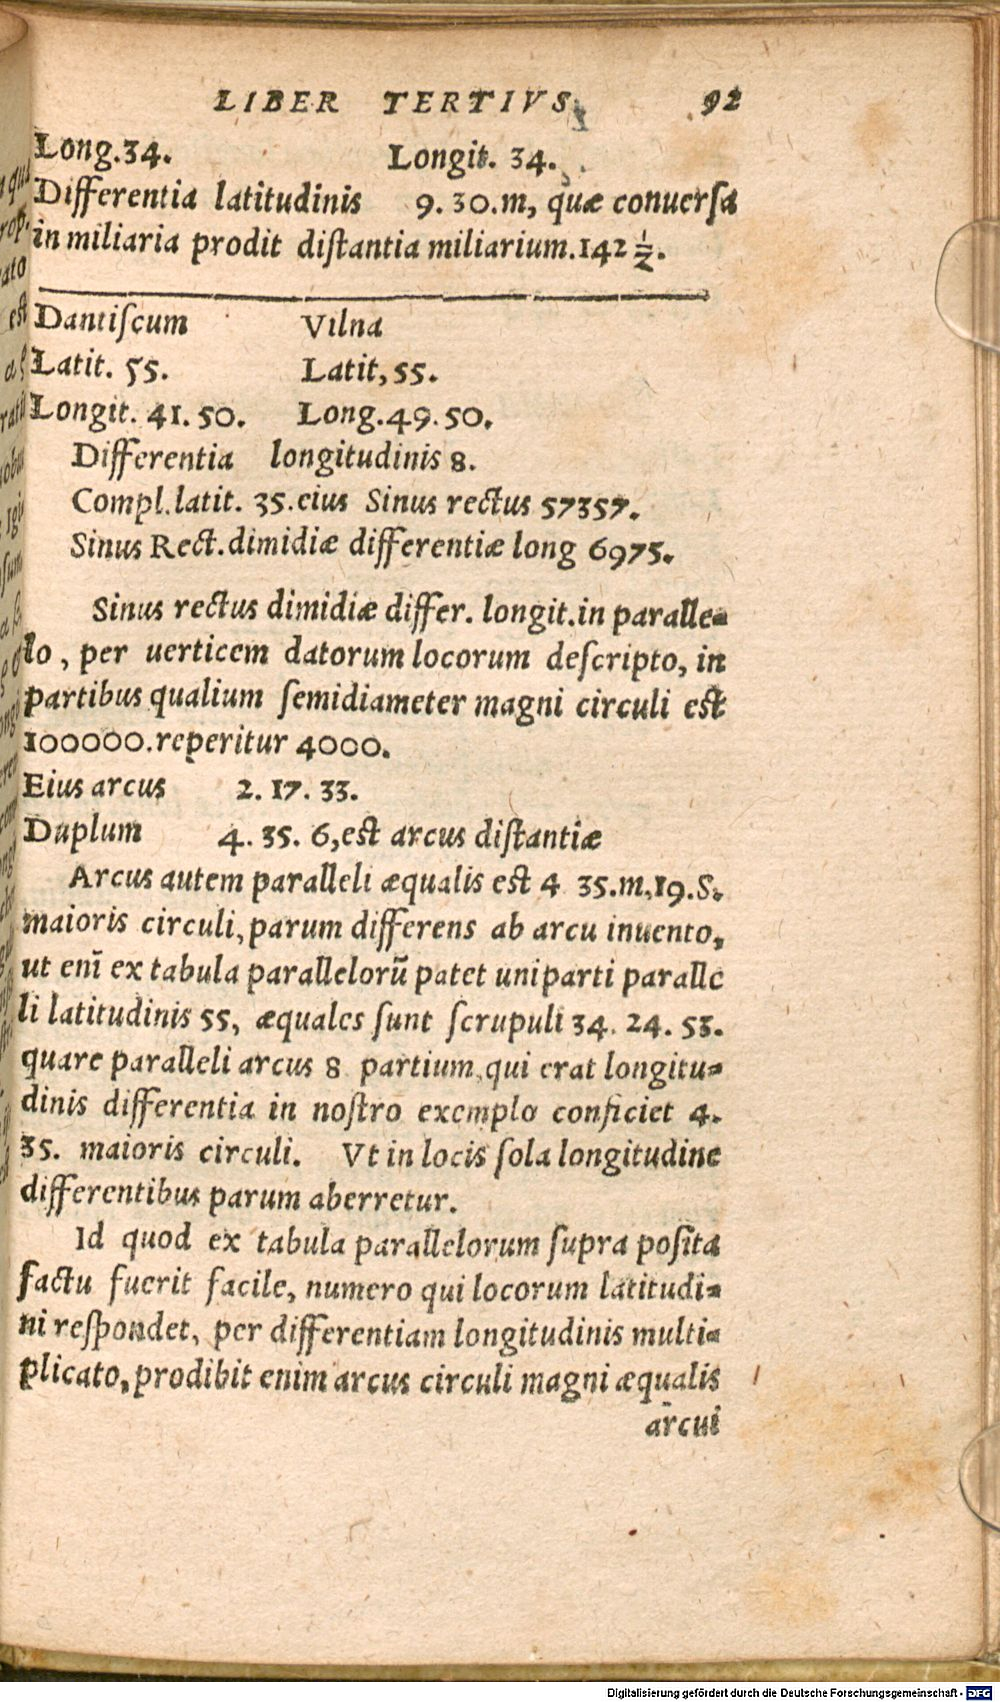 LIBER TERTIVS. 92
Long.34. Longit. 34.
Differentia latitudinis 9. 30.m, quæ conuersa
in miliaria prodit distantia miliarium.142 1/2.
Dantiscum Vilna
Latit. 55. Latit, 55.
Longit. 41. 50. Long.49. 50.
Differentia longitudinis 8.
Compl.latit. 35.eius Sinus rectus 57357.
Sinus Rect.dimidiæ differentiæ long 6975.
Sinus rectus dimidiæ differ. longit.in paralle=
lo, per uerticem datorum locorum descripto, in
partibus qualium semidiameter magni circuli est
100000.reperitur 4000.
Eius arcus 2. 17. 33.
Duplum 4. 35. 6,est arcus distantiæ
Arcus autem paralleli æqualis est 4 35.m.19.S.
maioris circuli, parum differens ab arcu inuento,
ut enī ex tabula parallelorū patet uniparti paralle
li latitudinis 55, æquales sunt scrupuli 34. 24. 53.
quare paralleli arcus 8 partium,qui erat longitu=
dinis differentia in nostro exemplo conficiet 4.
35. maioris circuli. Vt in locis sola longitudine
differentibus parum aberretur.
Id quod ex tabula parallelorum supra posita
factu fuerit facile, numero qui locorum latitudi=
ni respondet, per differentiam longitudinis multi=
plicato, prodibit enim arcus circuli magni æqualis
arcui
Digitalisierung gefördert durch die Deutsche Forschungsgemeinschaft - DFG